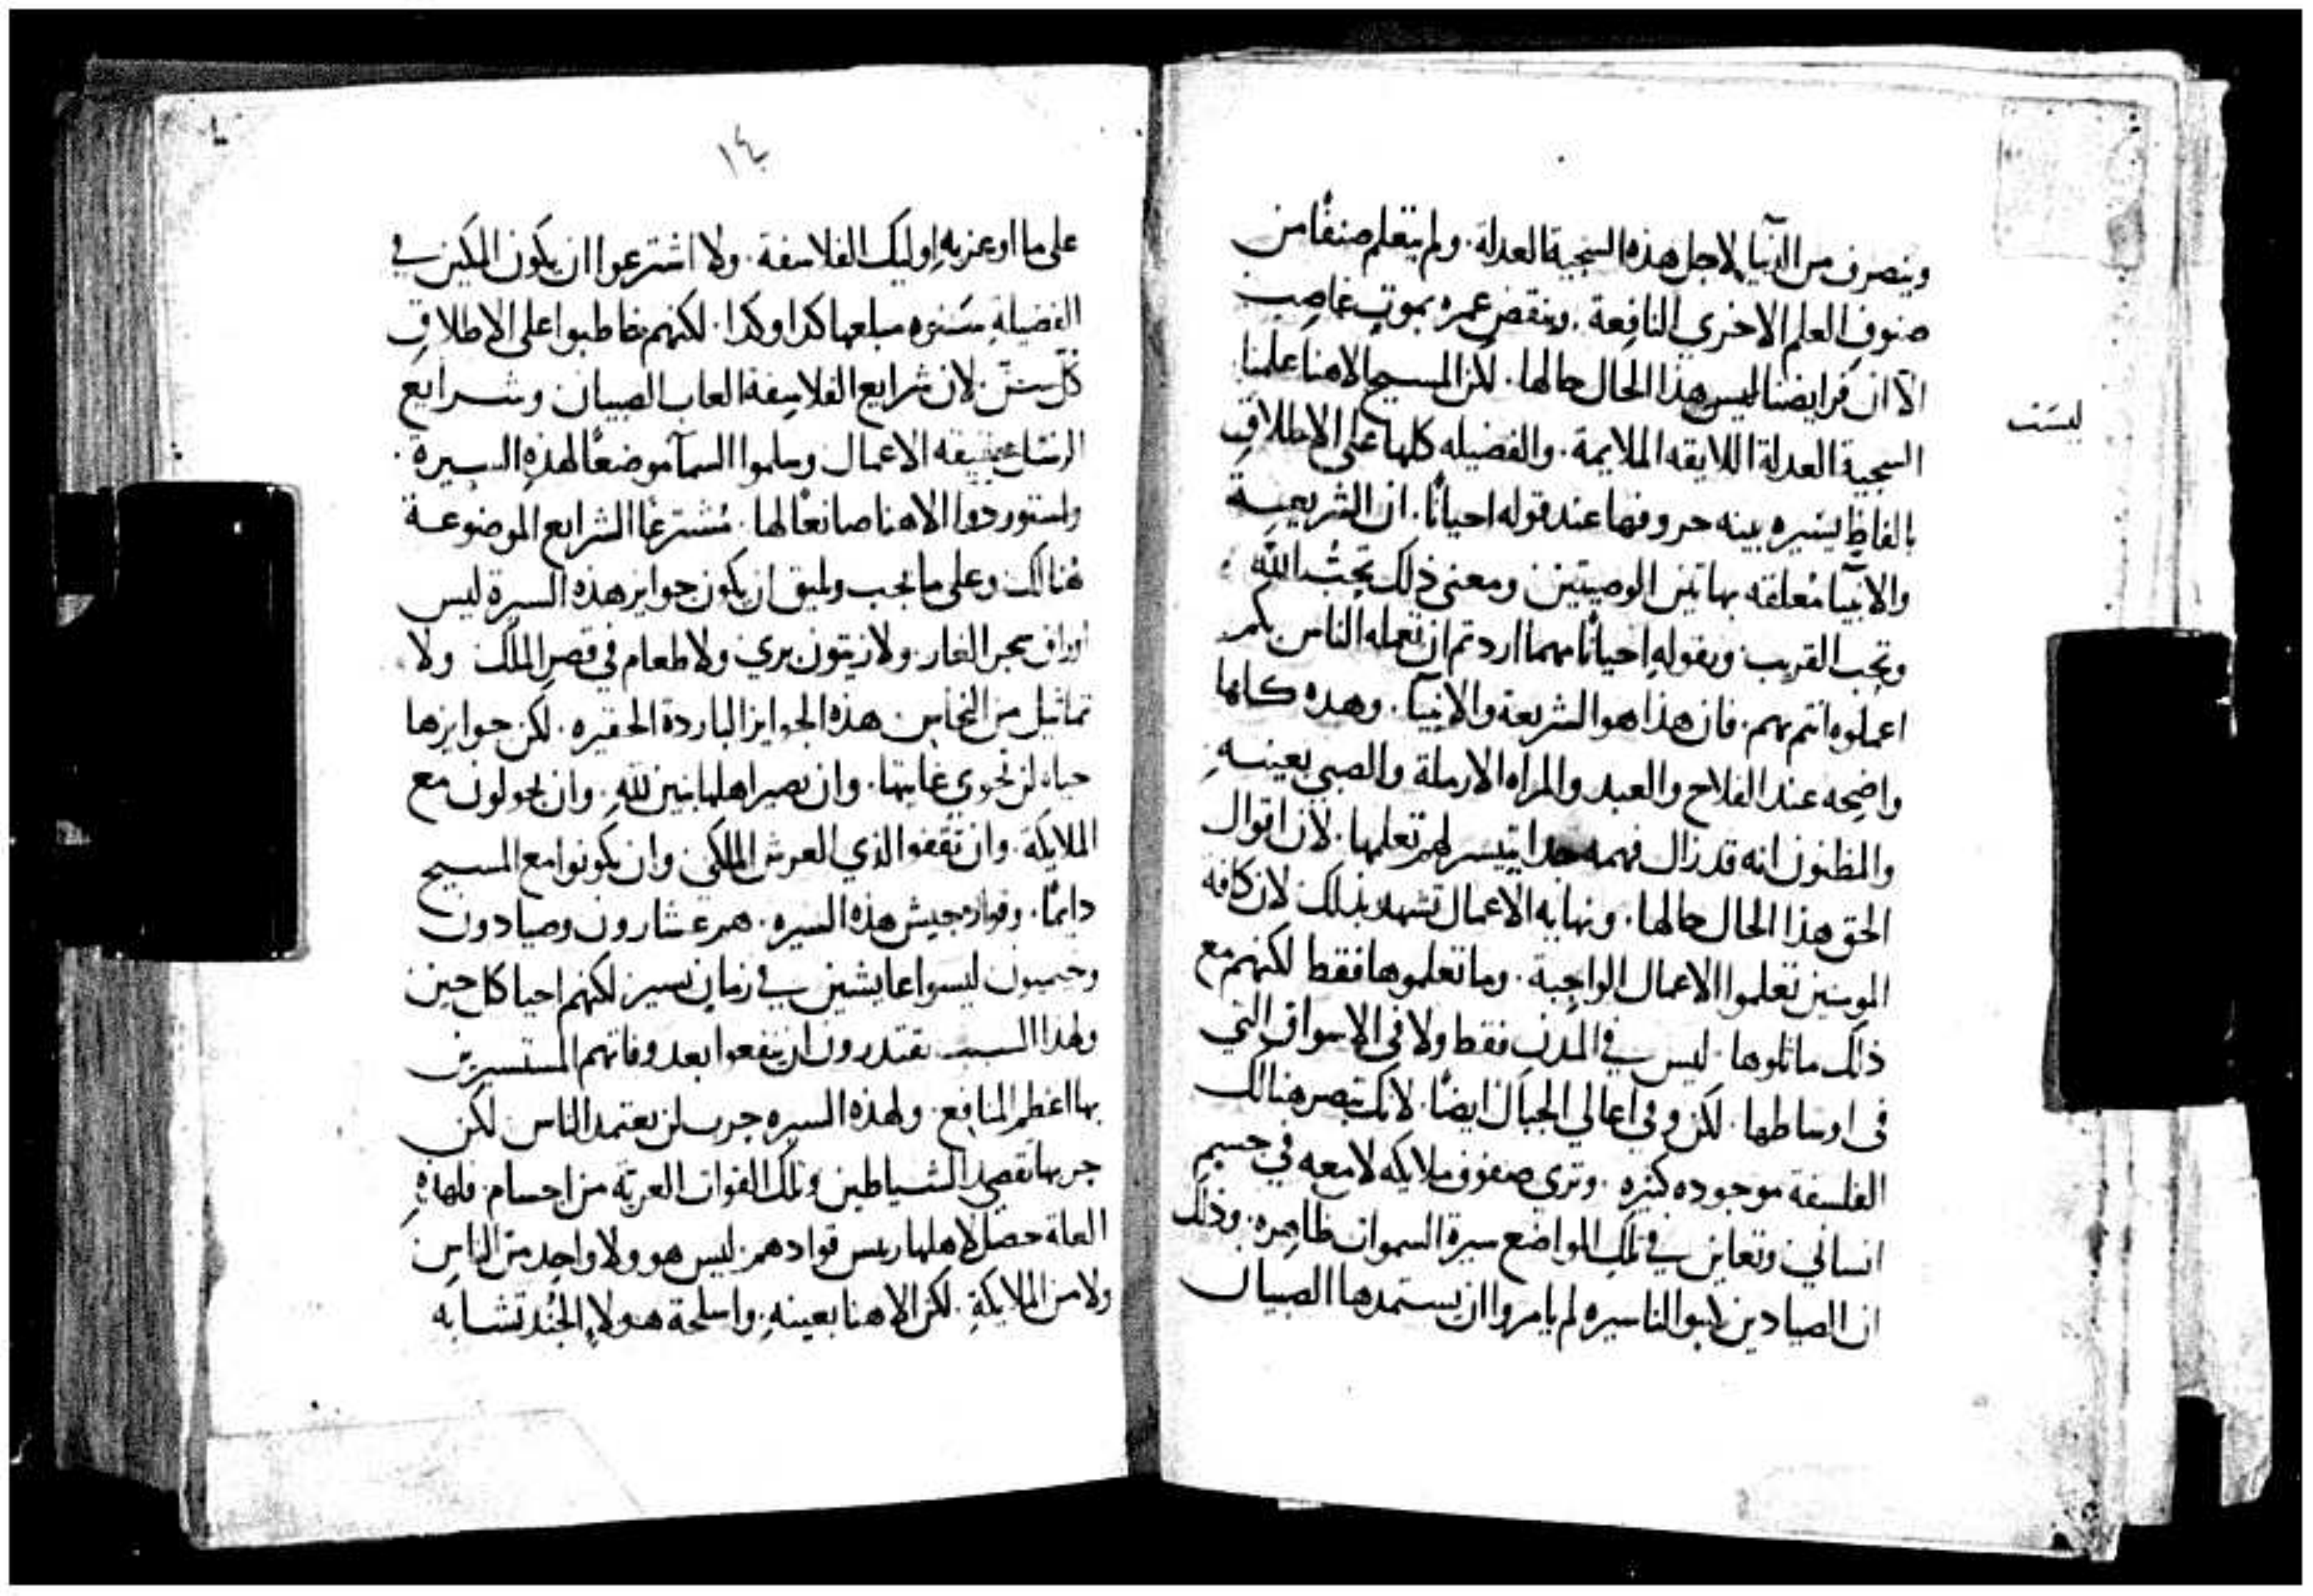 وينصرف من الدنيا لاجل هذه السجية العدلة. ولم يتعلم صنفًا من
صنوف العلم الاخري النافعة. وينقض عمره بموتٍ غاصب
الا ان فرايضنا ليس هذا الحال حالها. لكن المسيح الاهنا علمنا
ليست
السجية العدلة اللايقه الملايمة. والفضيله كلها على الاطلاق
بالفاظٍ يسيره بينه حروفها عند قوله احيانًا. ان الشريعة
والانبيا مُعلقه بهاتين الوصيتين ومعنى ذلك تحب الله
وتحب القريب. وبقوله احيانًا مهما اردتم ان تعمله الناس بكم
اعملوه انتم بهم. فان هذا هو الشريعة والانبيا. وهذه كلها
واضحه عند الفلاح والعبد والمراه الارملة والصبي بعينه
والمظنون انه قد زال فهمه جدا يتيسر لهم تعلمها. لان اقوال
الحق هذا الحال حالها. ونهايه الاعمال تشهد بذلك لان كافه
المومنين تعلموا الاعمال الواجبة. وما تعلموها فقط لكنهم مع
ذلك ماثلوها. ليس في المدن فقط ولا في الاسواق التي
في اوساطها. لكن وفي اعالي الجبال ايضًا. لانك تبصر هنالك
الفلسفة موجوده كثيره. وتري صفوف ملايكه لامعه في جسم
انساني وتعاين في تلك المواضع سيرة السموات ظاهره. وذلك
ان الصيادين كتبوا لنا سيره لم يامروا ان يستمدها الصبيان
١٤
على ما اوعز به اوليك الفلاسفة. ولا اشترعوا ان يكون المكين في
الفضيلة سنوه مبلغها كذا وكذا. لكنهم خاطبوا على الاطلاق
كل سن. لان شرايع الفلاسفة العاب الصبيان وشرايع
الرسل حقيقه الاعمال وسلموا السمآ موضعًا لهذه السيرة.
واستوردوا الاهنا صانعًا لها. مُشترعًا الشرايع الموضوعة
هُنالك وعلى ما يجب ويليق ان يكون جوايز هذه السيرة ليس
اوراق شجر الغار. ولا زيتون بري ولا طعام في قصر الملك ولا
تماثيل من النحاس هذه الجوايز الباردة الحقيره. لكن جوايزها
حياه لن تحوي غايتها. وان يصير اهلها بنين لله. وان يجولون مع
الملايكة. وان يقفوا لدي العرش الملكي وان يكونوا مع المسيح
دايمًا. وقواد جيش هذه السيره. هم عشارون وصيادون
وخيميون ليسوا عايشين في زمانٍ يسير لكنهم احيا كل حين
ولهذا السبب يقتدرون ان ينفعوا بعد وفاتهم المستسيرين
بها اعظم المنافع. ولهذه السيره حرب لن يعتمد الناس لكن
حربها تقصد الشياطين وتلك القوات العرية من اجسام. فلهذه
العلة حصل لاهلها رييس قوادهم. ليس هو ولا واحد من الناس
ولا من الملايكة. لكن الاهنا بعينه. واسلحة هولاء الجند تشابه